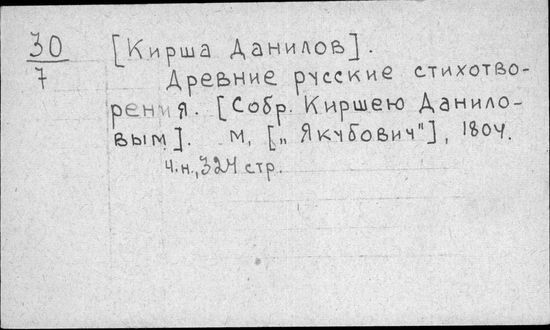 30
7
[Кирша Данилов].
Древние русские стихотво-
рения. [Собр. Киршею Данило-
вым]. М, [„Якубович"], 1804.
4.н., 324 стр.